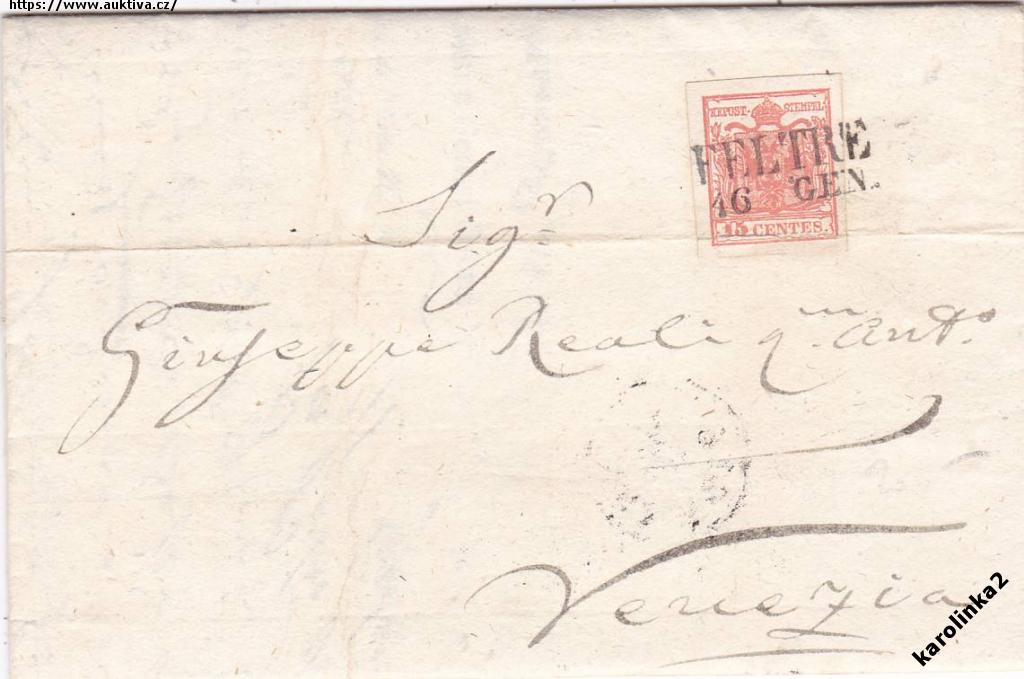 https://www.auktiva.cz/
KKPOST-STEMPEL
FELTRE
16 GEN.
15 CENTES.
Sigr
Giuseppe Reali qm Anto
Venezia
karolinka2